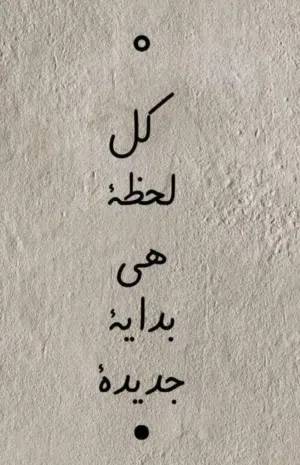 كل
لحظۀ
هي
بدايۀ
جديدۀ